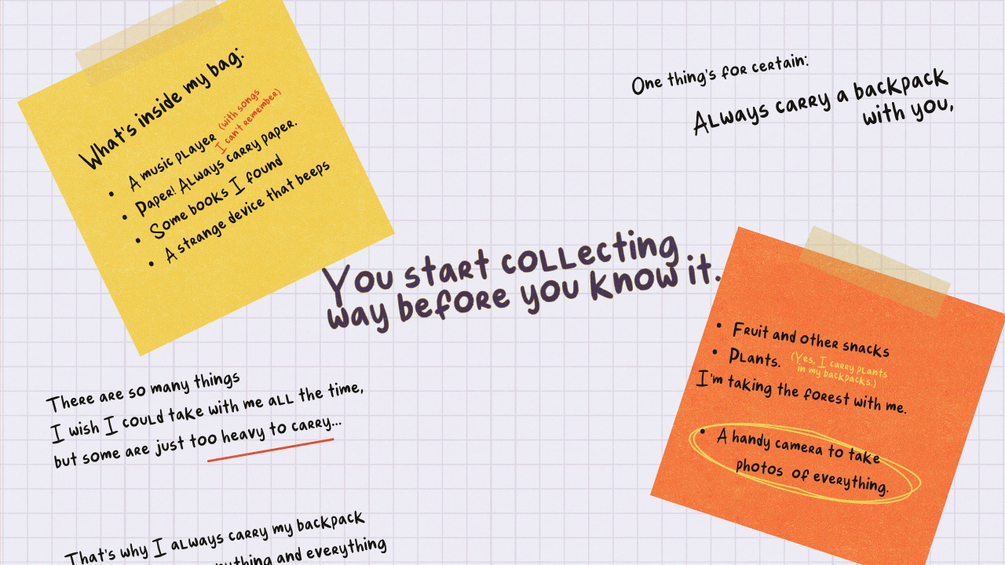 What's inside my bag:
• A music player (with songs
I can't remember)
• Paper! Always carry paper.
• Some books I found
• A strange device that beeps
One thing's for certain:
Always carry a backpack
with you,
You start collecting
way before you know it.
There are so many things
I wish I could take with me all the time,
but some are just too heavy to carry...
• Fruit and other snacks
• Plants. (Yes, I carry plants
in my backpacks.)
I'm taking the forest with me.
• A handy camera to take
photos of everything.
That's why I always carry my backpack
and everything